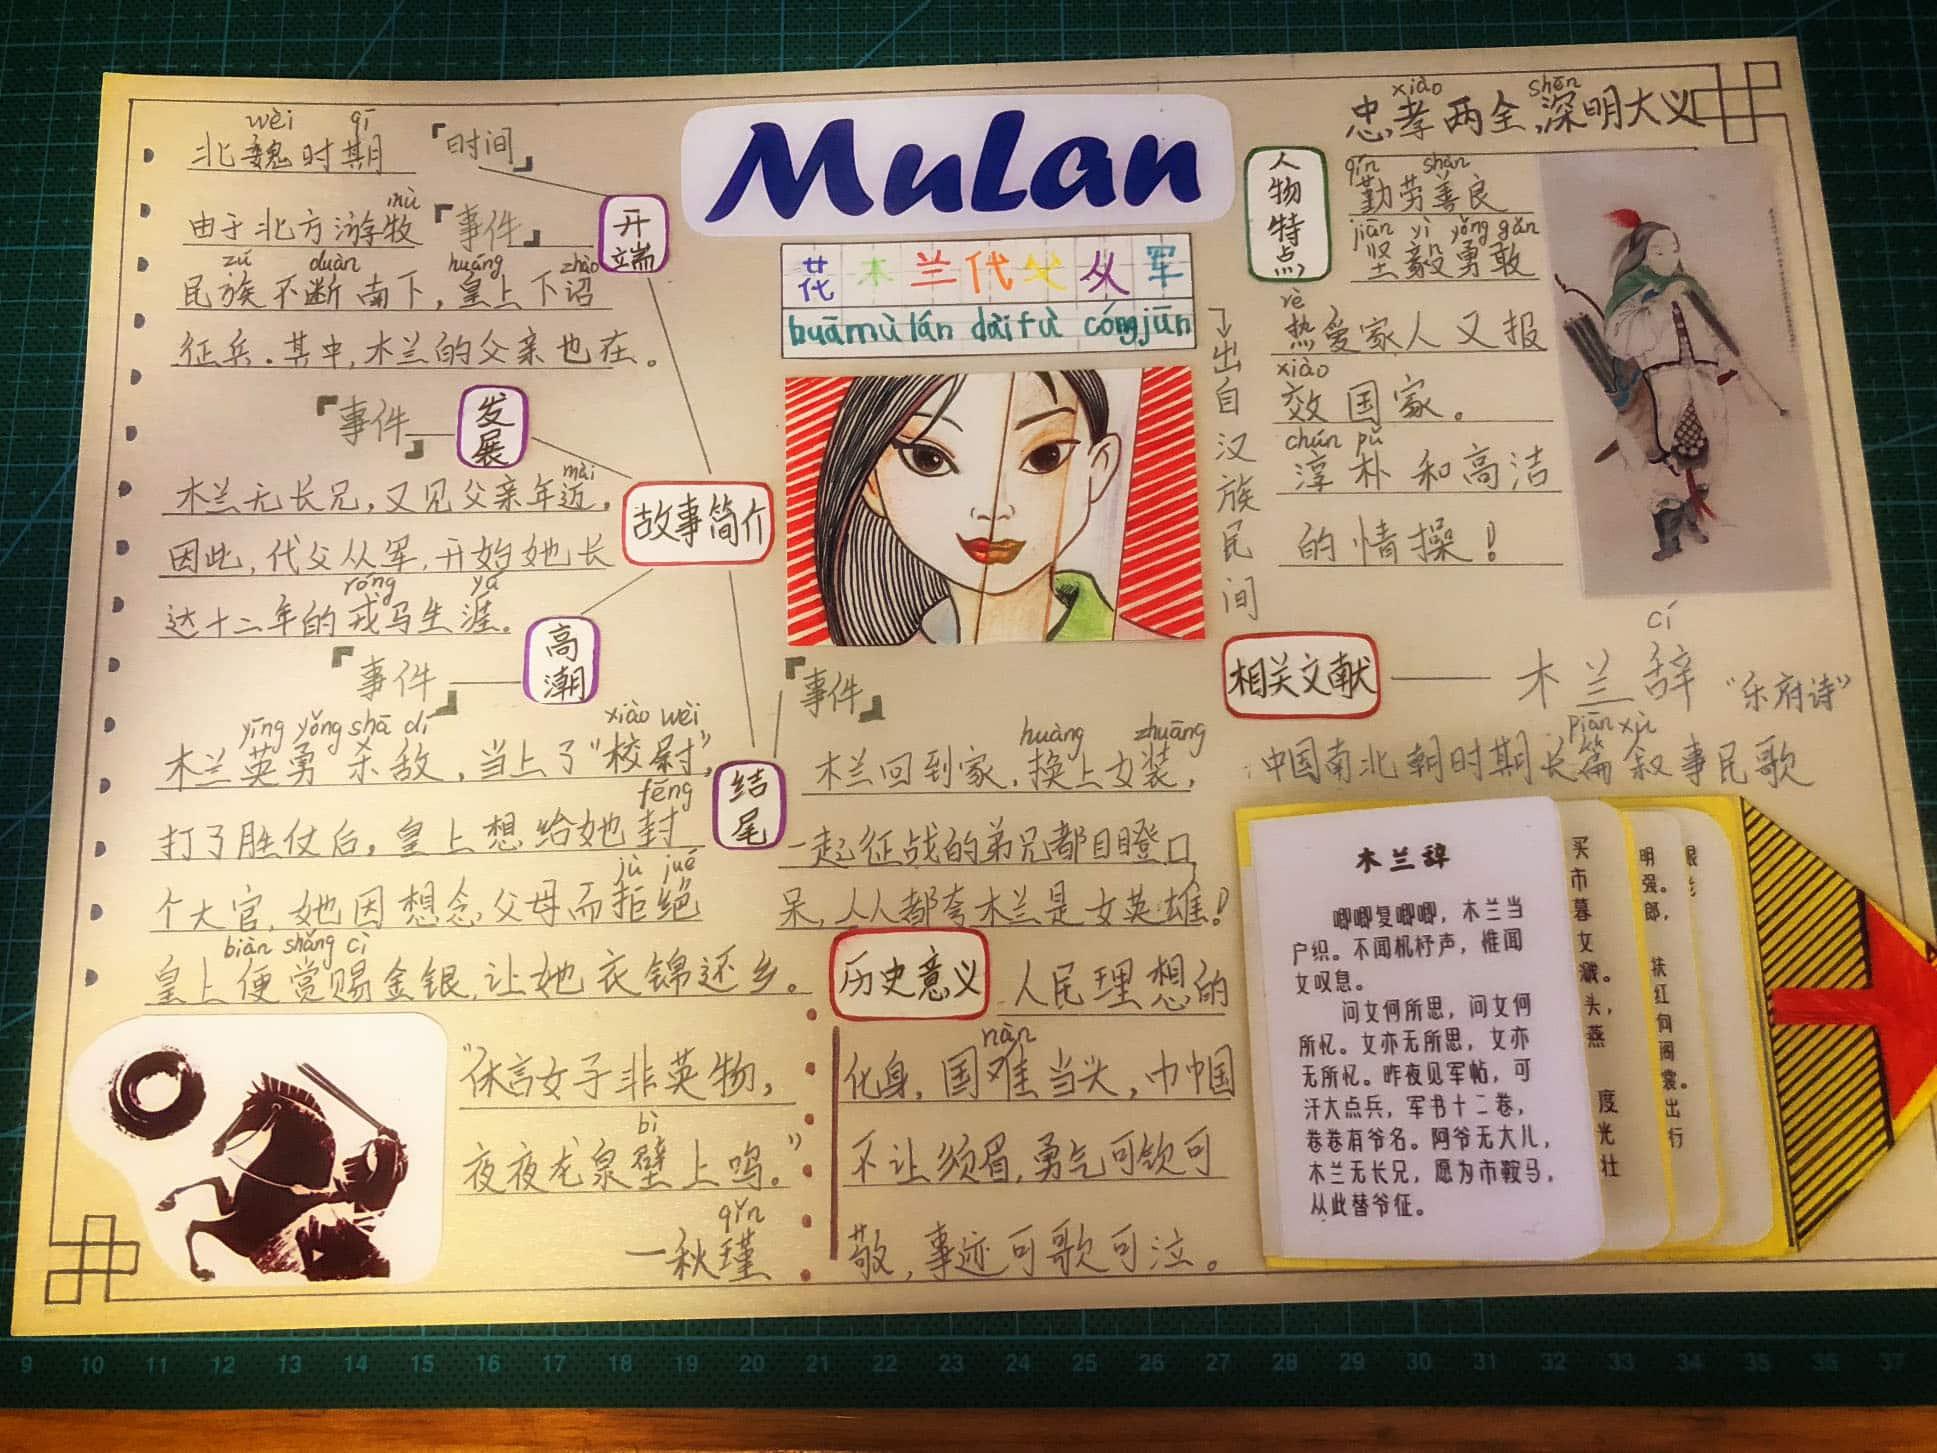 MuLan
花木兰代父从军
huā mù lán dài fù cóng jūn
出自汉族民间
故事简介
开端
「时间」
wèi qī
北魏时期
「事件」
mù
由于北方游牧
zú duàn huáng zhào
民族不断南下，皇上下诏
征兵.其中,木兰的父亲也在。
发展
「事件」
mài
木兰无长兄，又见父亲年迈，
因此,代父从军,开始她长
róng yá
达十二年的戎马生涯.
高潮
「事件」
yīng yǒng shā dí xiào wèi
木兰英勇杀敌,当上了“校尉”,
fēng
打了胜仗后,皇上想给她封
jù jué
个大官,她因想念父母而拒绝
biàn shǎng cì
皇上便赏赐金银,让她衣锦还乡。
结尾
「事件」
huàng zhuāng
木兰回到家,换上女装,
一起征战的弟兄都目瞪口
呆,人人都夸木兰是女英雄!
“休言女子非英物，
bì
夜夜龙泉壁上鸣.”
qǐn
一秋瑾
历史意义
人民理想的
nàn
化身,国难当头,巾帼
不让须眉,勇气可钦可
敬,事迹可歌可泣。
人物特点
xiào shēn
忠孝两全,深明大义
qín shàn
勤劳善良
jiān yì yǒng gǎn
坚毅勇敢
rè
热爱家人又报
xiào
效国家。
chún pǔ
淳朴和高洁
的情操!
相关文献
cí
木兰辞
“乐府诗”
piān xù
中国南北朝时期长篇叙事民歌
木兰辞
唧唧复唧唧，木兰当
户织。不闻机杼声，惟闻
女叹息。
问女何所思，问女何
所忆。女亦无所思，女亦
无所忆。昨夜见军帖，可
汗大点兵，军书十二卷，
卷卷有爷名。阿爷无大儿，
木兰无长兄，愿为市鞍马，
从此替爷征。
买
市
暮
女
溅。
头，
燕
度
光
壮
明
强。
郎，
扶
红
向
阁
裳。
出
行
9 10 11 12 13 14 15 16 17 18 19 20 21 22 23 24 25 26 27 28 29 30 31 32 33 34 35 36 37